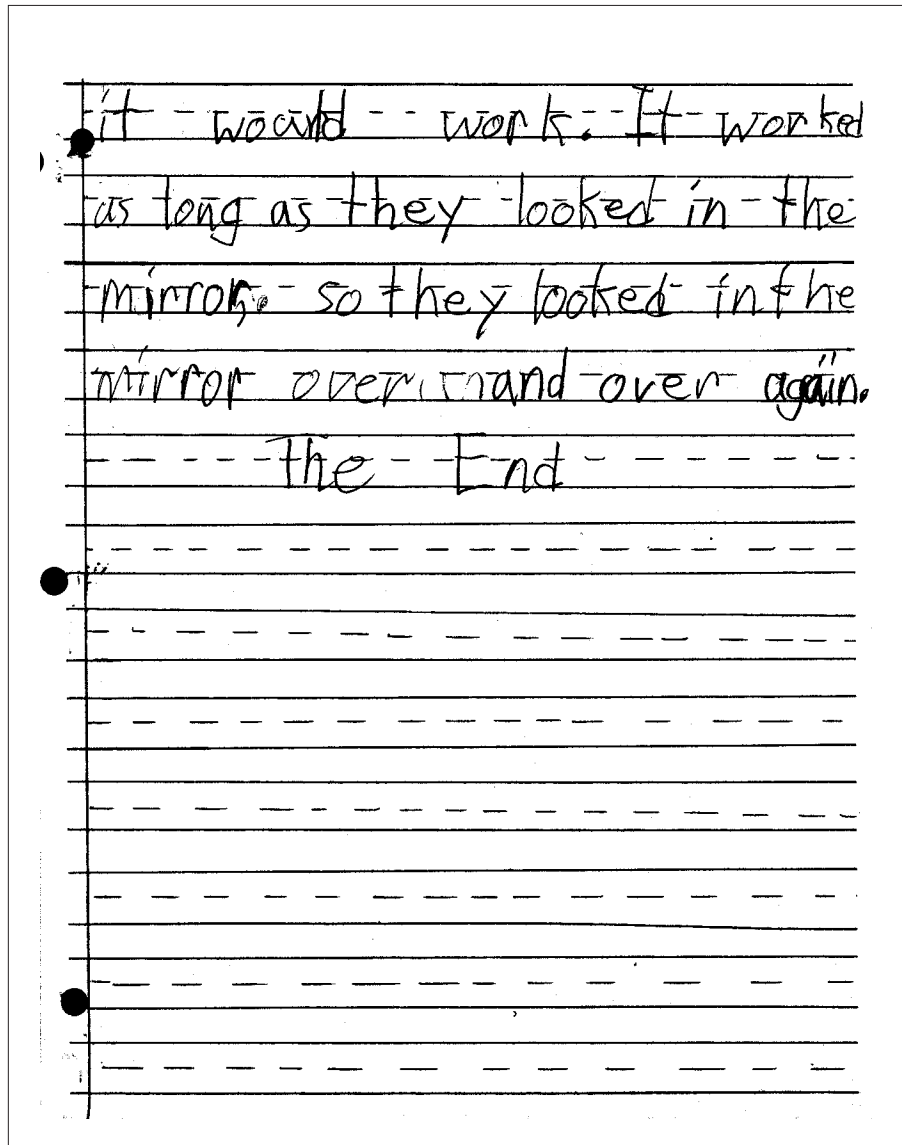 it would work. It worked
as long as they looked in the
mirror. so they looked in the
mirror over and over again.
The End